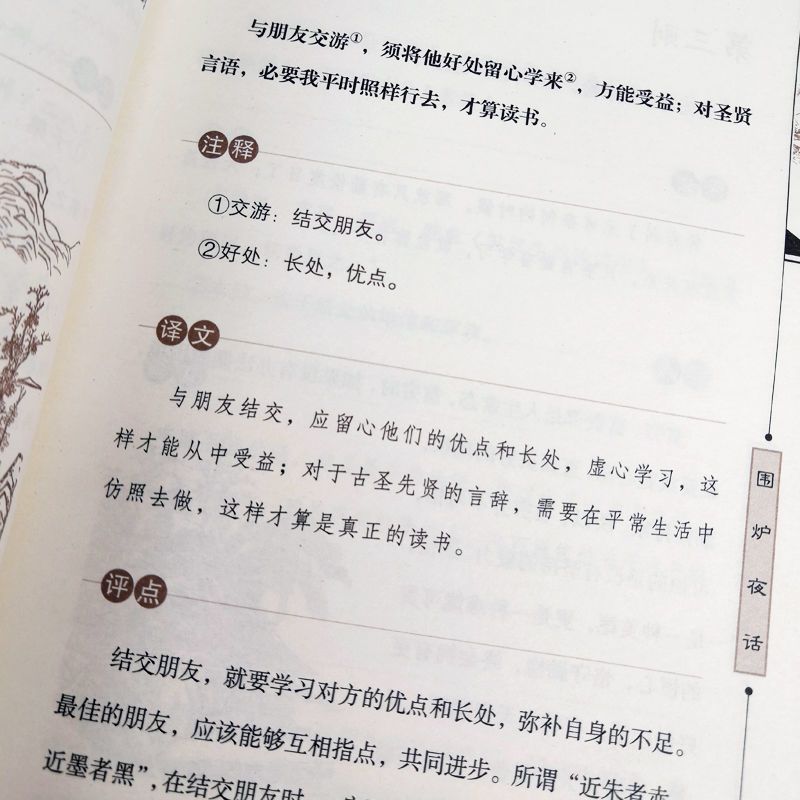 与朋友交游①，须将他好处留心学来②，方能受益；对圣贤
言语，必要我平时照样行去，才算读书。
注释
①交游：结交朋友。
②好处：长处，优点。
译文
与朋友结交，应留心他们的优点和长处，虚心学习，这
样才能从中受益；对于古圣先贤的言辞，需要在平常生活中
仿照去做，这样才算是真正的读书。
评点
结交朋友，就要学习对方的优点和长处，弥补自身的不足。
最佳的朋友，应该能够互相指点，共同进步。所谓“近朱者赤
近墨者黑”，在结交朋友时
围炉夜话